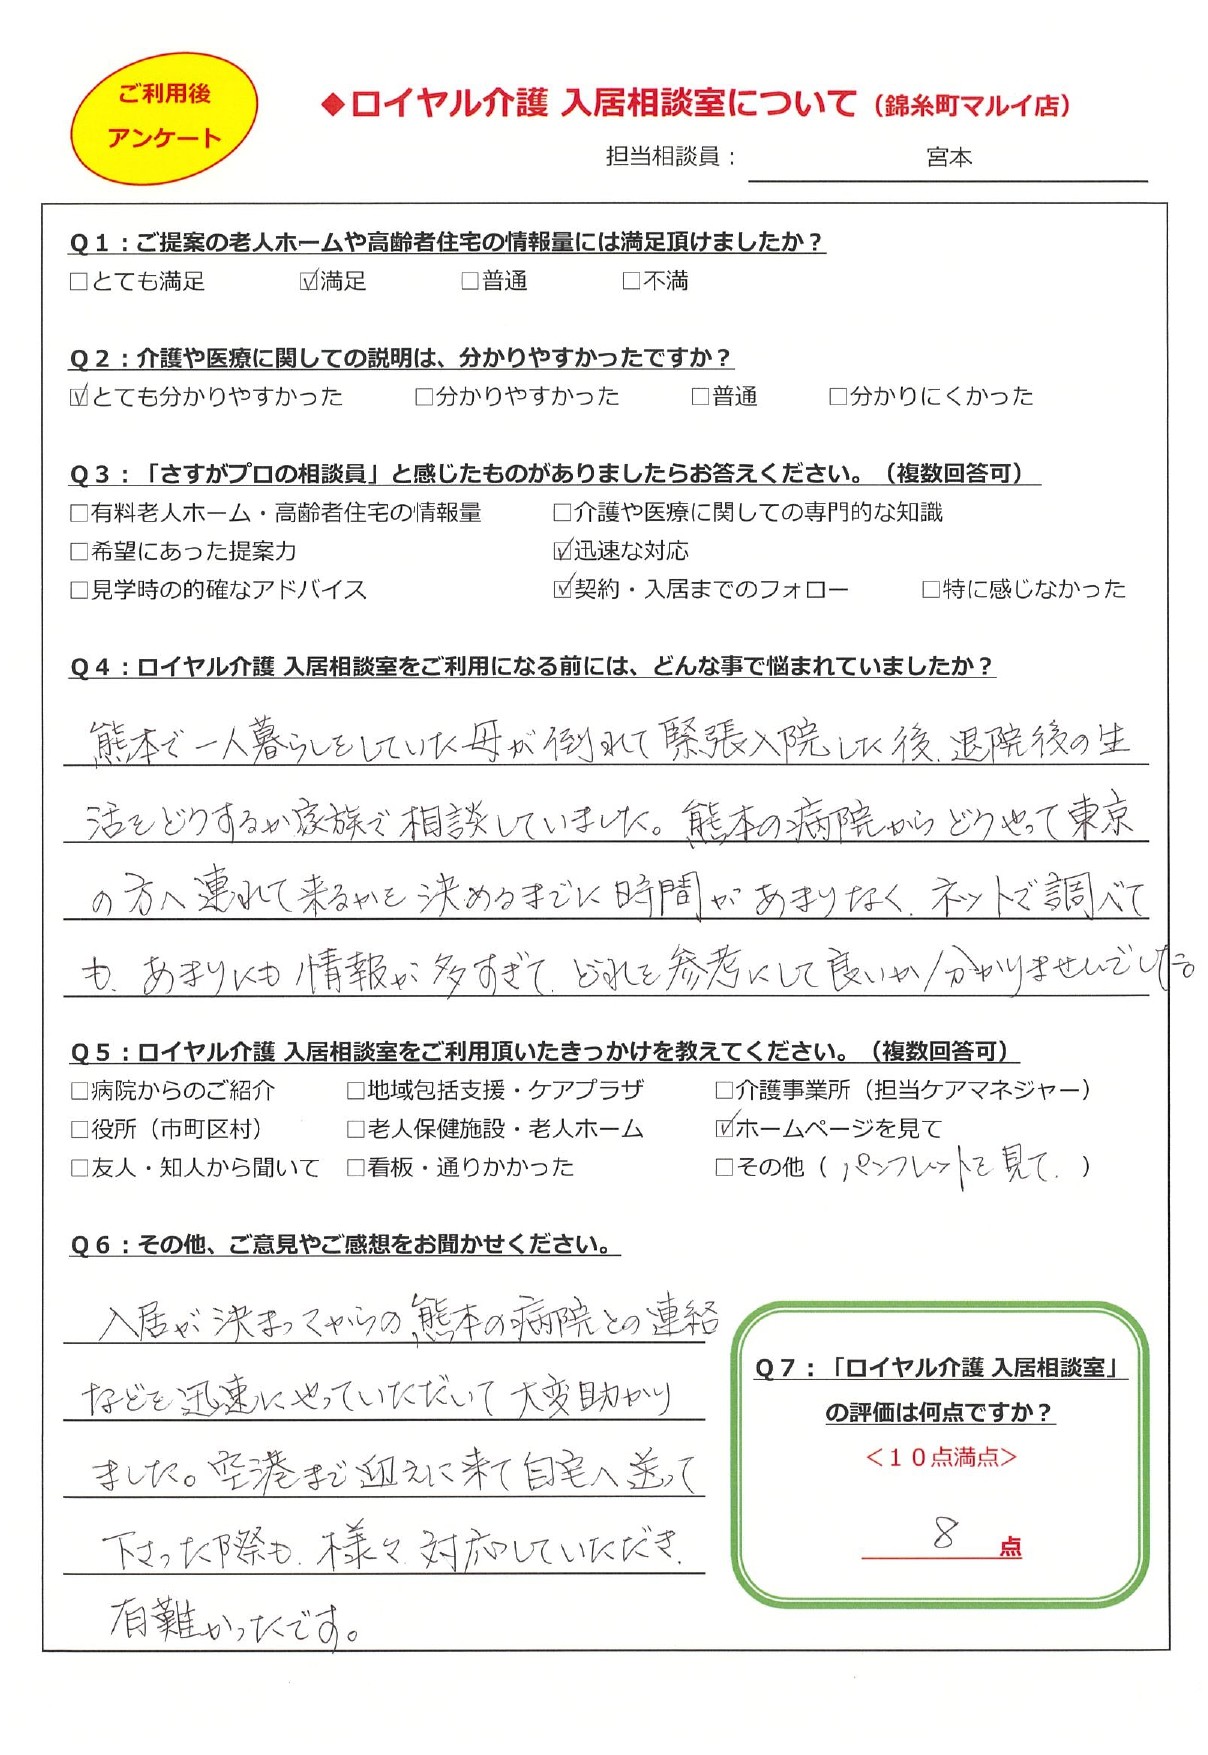 ご利用後
アンケート
◆ロイヤル介護 入居相談室について（錦糸町マルイ店）
担当相談員： 宮本
Ｑ１：ご提案の老人ホームや高齢者住宅の情報量には満足頂けましたか？
□とても満足 ☑満足 □普通 □不満
Ｑ２：介護や医療に関しての説明は、分かりやすかったですか？
☑とても分かりやすかった □分かりやすかった □普通 □分かりにくかった
Ｑ３：「さすがプロの相談員」と感じたものがありましたらお答えください。（複数回答可）
□有料老人ホーム・高齢者住宅の情報量 □介護や医療に関しての専門的な知識
□希望にあった提案力 ☑迅速な対応
□見学時の的確なアドバイス ☑契約・入居までのフォロー □特に感じなかった
Ｑ４：ロイヤル介護 入居相談室をご利用になる前には、どんな事で悩まれていましたか？
熊本で一人暮らしをしていた母が倒れて緊張入院した後、退院後の生
活をどうするか家族で相談していました。熊本の病院からどうやって東京
の方へ連れて来るかを決めるまでに時間があまりなく、ネットで調べて
も、あまりにも情報が多すぎて、どれを参考にして良いか分かりませんでした。
Ｑ５：ロイヤル介護 入居相談室をご利用頂いたきっかけを教えてください。（複数回答可）
□病院からのご紹介 □地域包括支援・ケアプラザ □介護事業所（担当ケアマネジャー）
□役所（市町区村） □老人保健施設・老人ホーム ☑ホームページを見て
□友人・知人から聞いて □看板・通りかかった □その他（パンフレットを見て、）
Ｑ６：その他、ご意見やご感想をお聞かせください。
入居が決まってからの熊本の病院との連絡
などを迅速にやっていただいて大変助かり
ました。空港まで迎えに来て自宅へ送って
下さった際も、様々対応していただき、
有難かったです。
Ｑ７：「ロイヤル介護 入居相談室」
の評価は何点ですか？
＜１０点満点＞
8 点